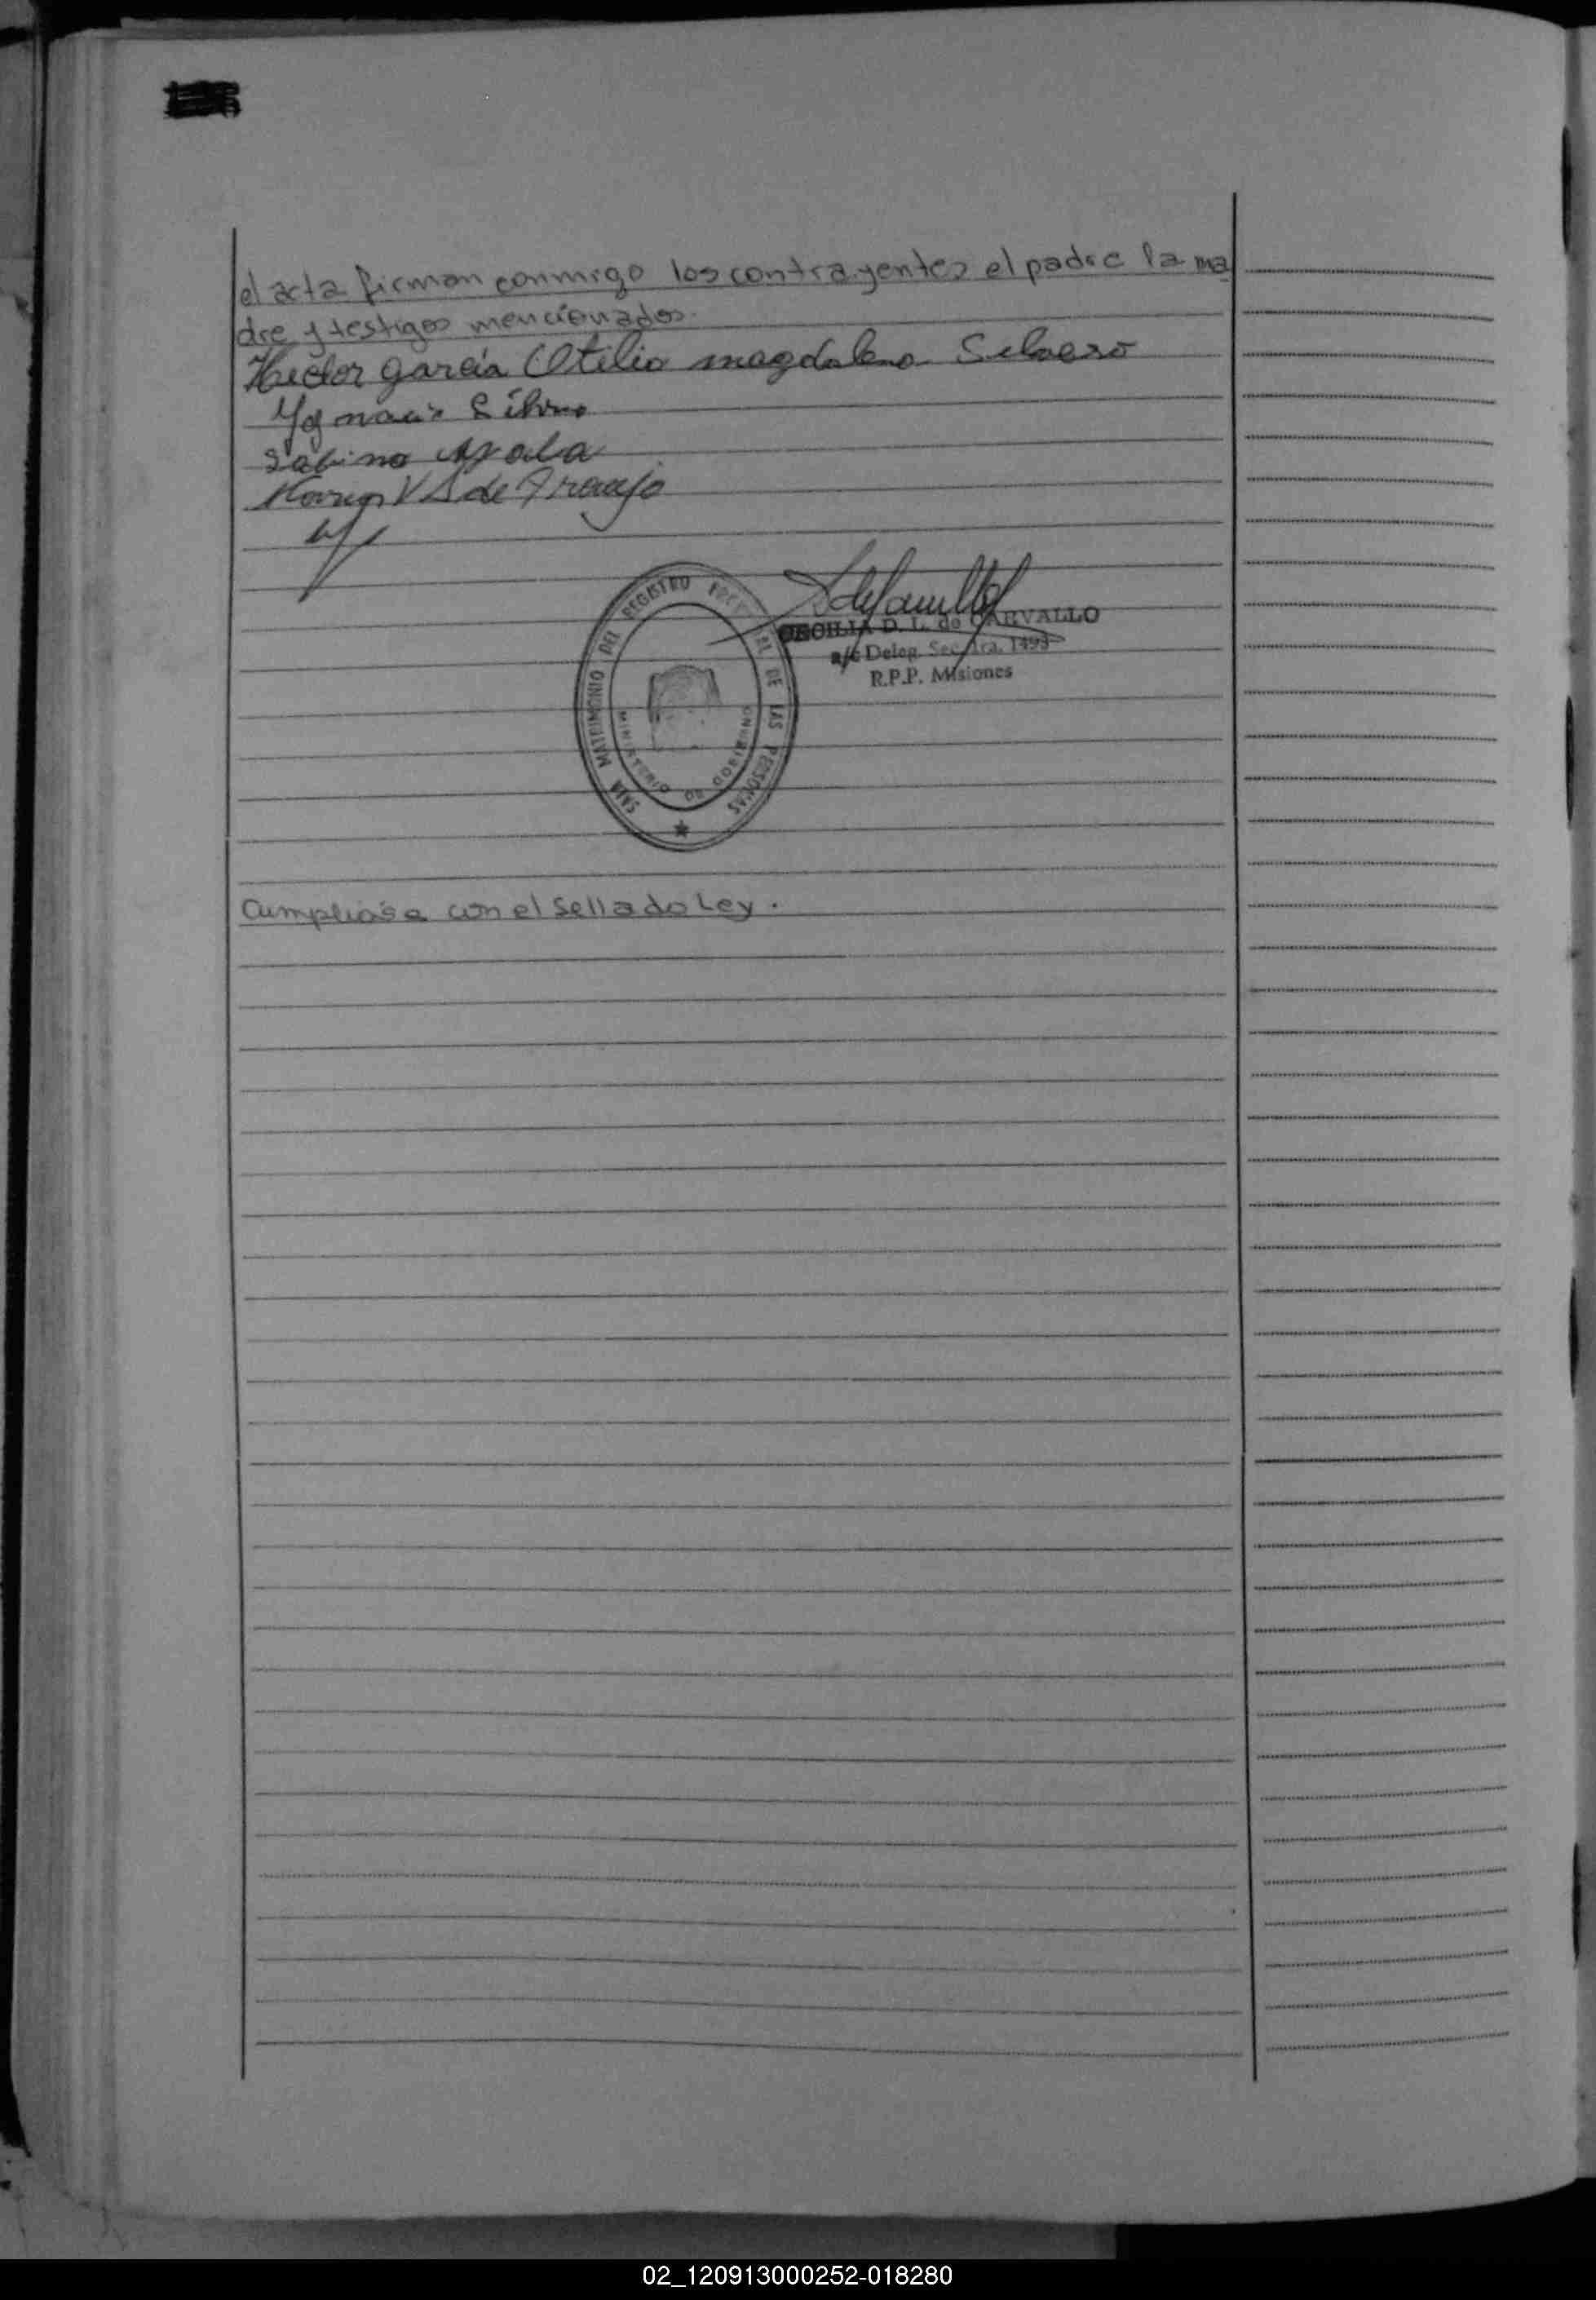 el acta firman conmigo los contrayentes el padre la ma
dre y testigos mencionados.
Hector garcia Otilia magdalena
Sabino Ayala
V S de Araujo
CECILIA D. L. de CARVALLO
a/c Deleg. Sec. 1ra. 1493
R.P.P. Misiones
SALA MATRIMONIO DEL REGISTRO PROVINCIAL DE LAS PERSONAS
MINISTERIO DE GOBIERNO
Cumpliose con el Sellado Ley.
02_120913000252-018280